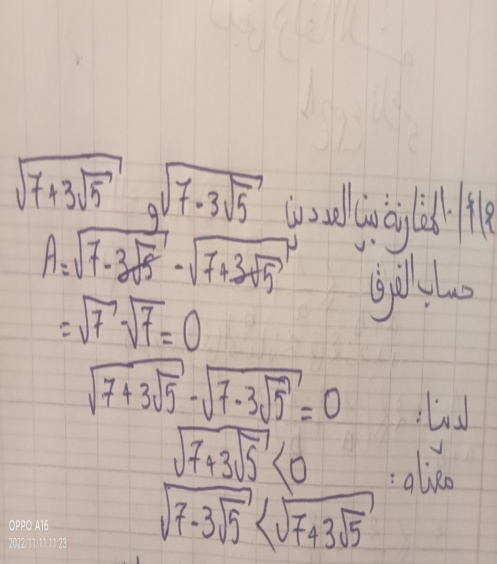 المقارنة بين العددين √(7-3√5) و √(7+3√5)
حساب الفرق A = √(7-3√5) - √(7+3√5)
= √7 - √7 = 0
لدينا: √(7+3√5) - √(7-3√5) = 0
معناه: √(7+3√5) < 0
√(7-3√5) < √(7+3√5)
OPPO A15
2022/11/11 11:23